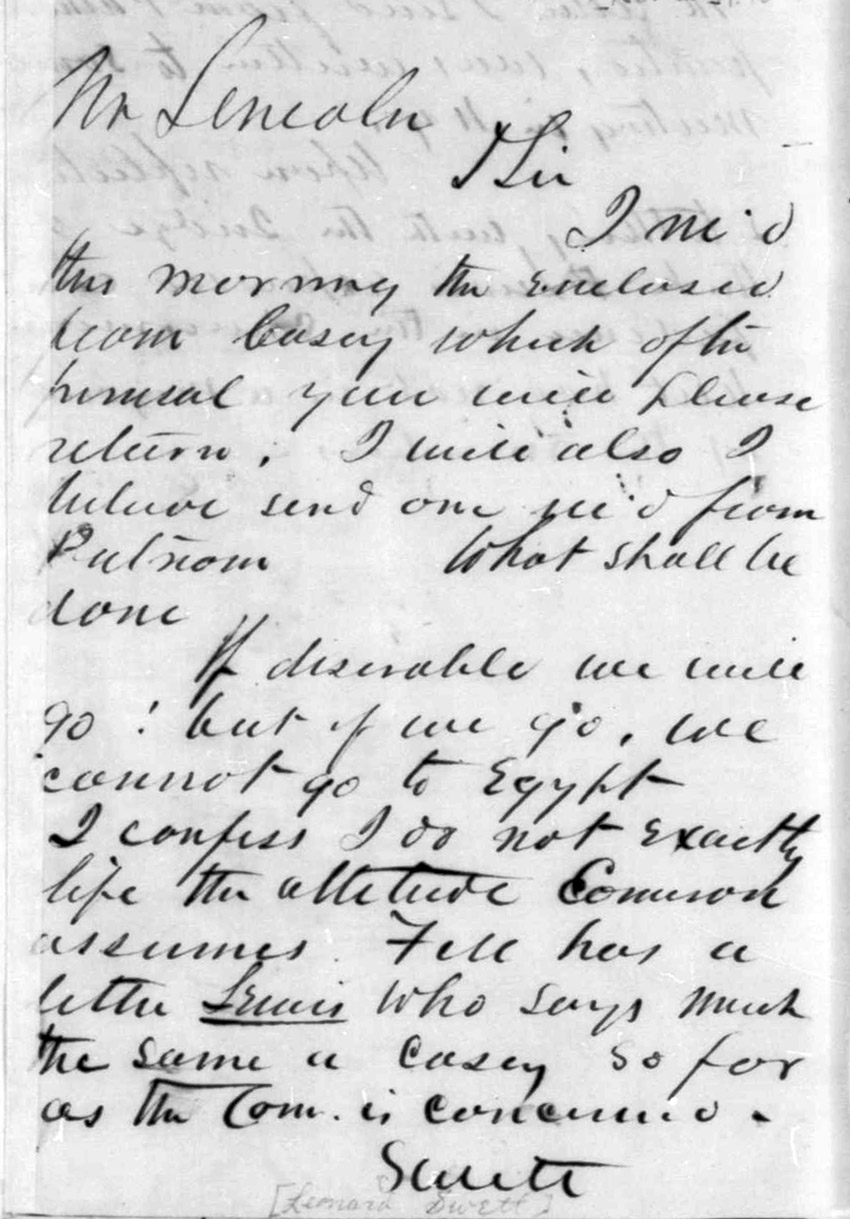 Mr Lincoln
D Sir
I rec'd
this morning the enclosed
from Casey which after
perusal you will please
return. I will also I
believe send one rec'd from
Putnam What shall be
done
If desirable we will
go! but if we go, we
cannot go to Egypt
I confess I do not exactly
like the attitude Cameron
assumes. Fell has a
letter Lewis who says much
the same a Casey so far
as the Com. is concerned.
Swett
[Leonard Swett]